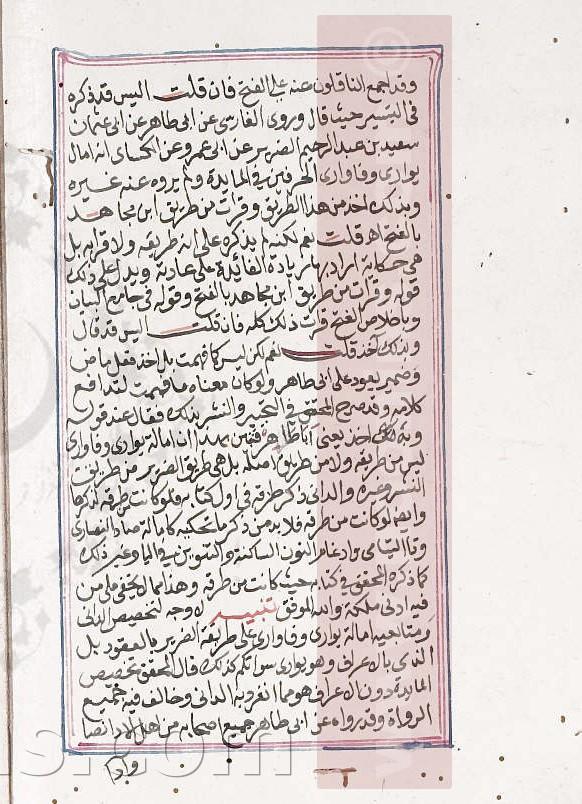 وقد اجمع الناقلون عنه على الفتح فان قلت اليس قد ذكره
في التيسير حيث قال وروى الفارسي عن ابي طاهر عن ابي عثمان
سعيد بن عبد الرحيم الضرير عن ابي عمر وعن الكسائي انه امال
يوارى وفاوارى الحرفين في المايدة ولم يروه عنه غيره
وبذلك اخذ من هذا الطريق وقرات من طريق ابن مجاهد
بالفتح اهـ قلت نعم لكنه لم يذكره على انه طريقه ولا قرا به بل
هي حكاية اراد بها زيادة الفائدة على عادته ويدل على ذلك
قوله وقرات من طريق ابن مجاهد بالفتح وقوله في جامع البيان
وباخلاص الفتح قرات ذلك كله فان قلت اليس قد قال
وبذلك اخذ قلت نعم لكن ليس كما فهمت بل اخذ فعل ماض
وضمير يعود على ابي طاهر ولو كان معناه ما فهمت لتدافع
كلامه وقد صرح المحقق في التحبير والنشر بذلك فقال عند قوله
وبذلك اخذ يعني ابا طاهر فتبين بهذا ان امالة يوارى وفاوارى
ليس من طريقه ولا من طريق اصله بل هي طريق الضرير من طريق
النشر وغيره والداني ذكر طرقه في اول كتابه فلو كانت من طرقه لذكرها
وايضا لو كانت من طرقه فلا بد من ذكر ما تحكيه كامالة صاد النصارى
وتا اليتامى وادغام النون الساكنة والتنوين في اليا وغير ذلك
كما ذكره المحقق في كتابه حيث كانت من طرقه وهذا مما لا يخفى على من
فيه ادنى ملكة والله الموفق تنبيه لا وجه لتخصيص الداني
ومتابعيه امالة يوارى وفاوارى على طريقة الضرير بالعقود بل
الذي بالاعراف وهو يوارى سواتكم كذلك قال المحقق تخصيص
المايدة دون الاعراف هو مما انفرد به الداني وخالف فيه جميع
الرواة وقد رواه عن ابي طاهر جميع اصحابه من اهل الادا نصا
وادا